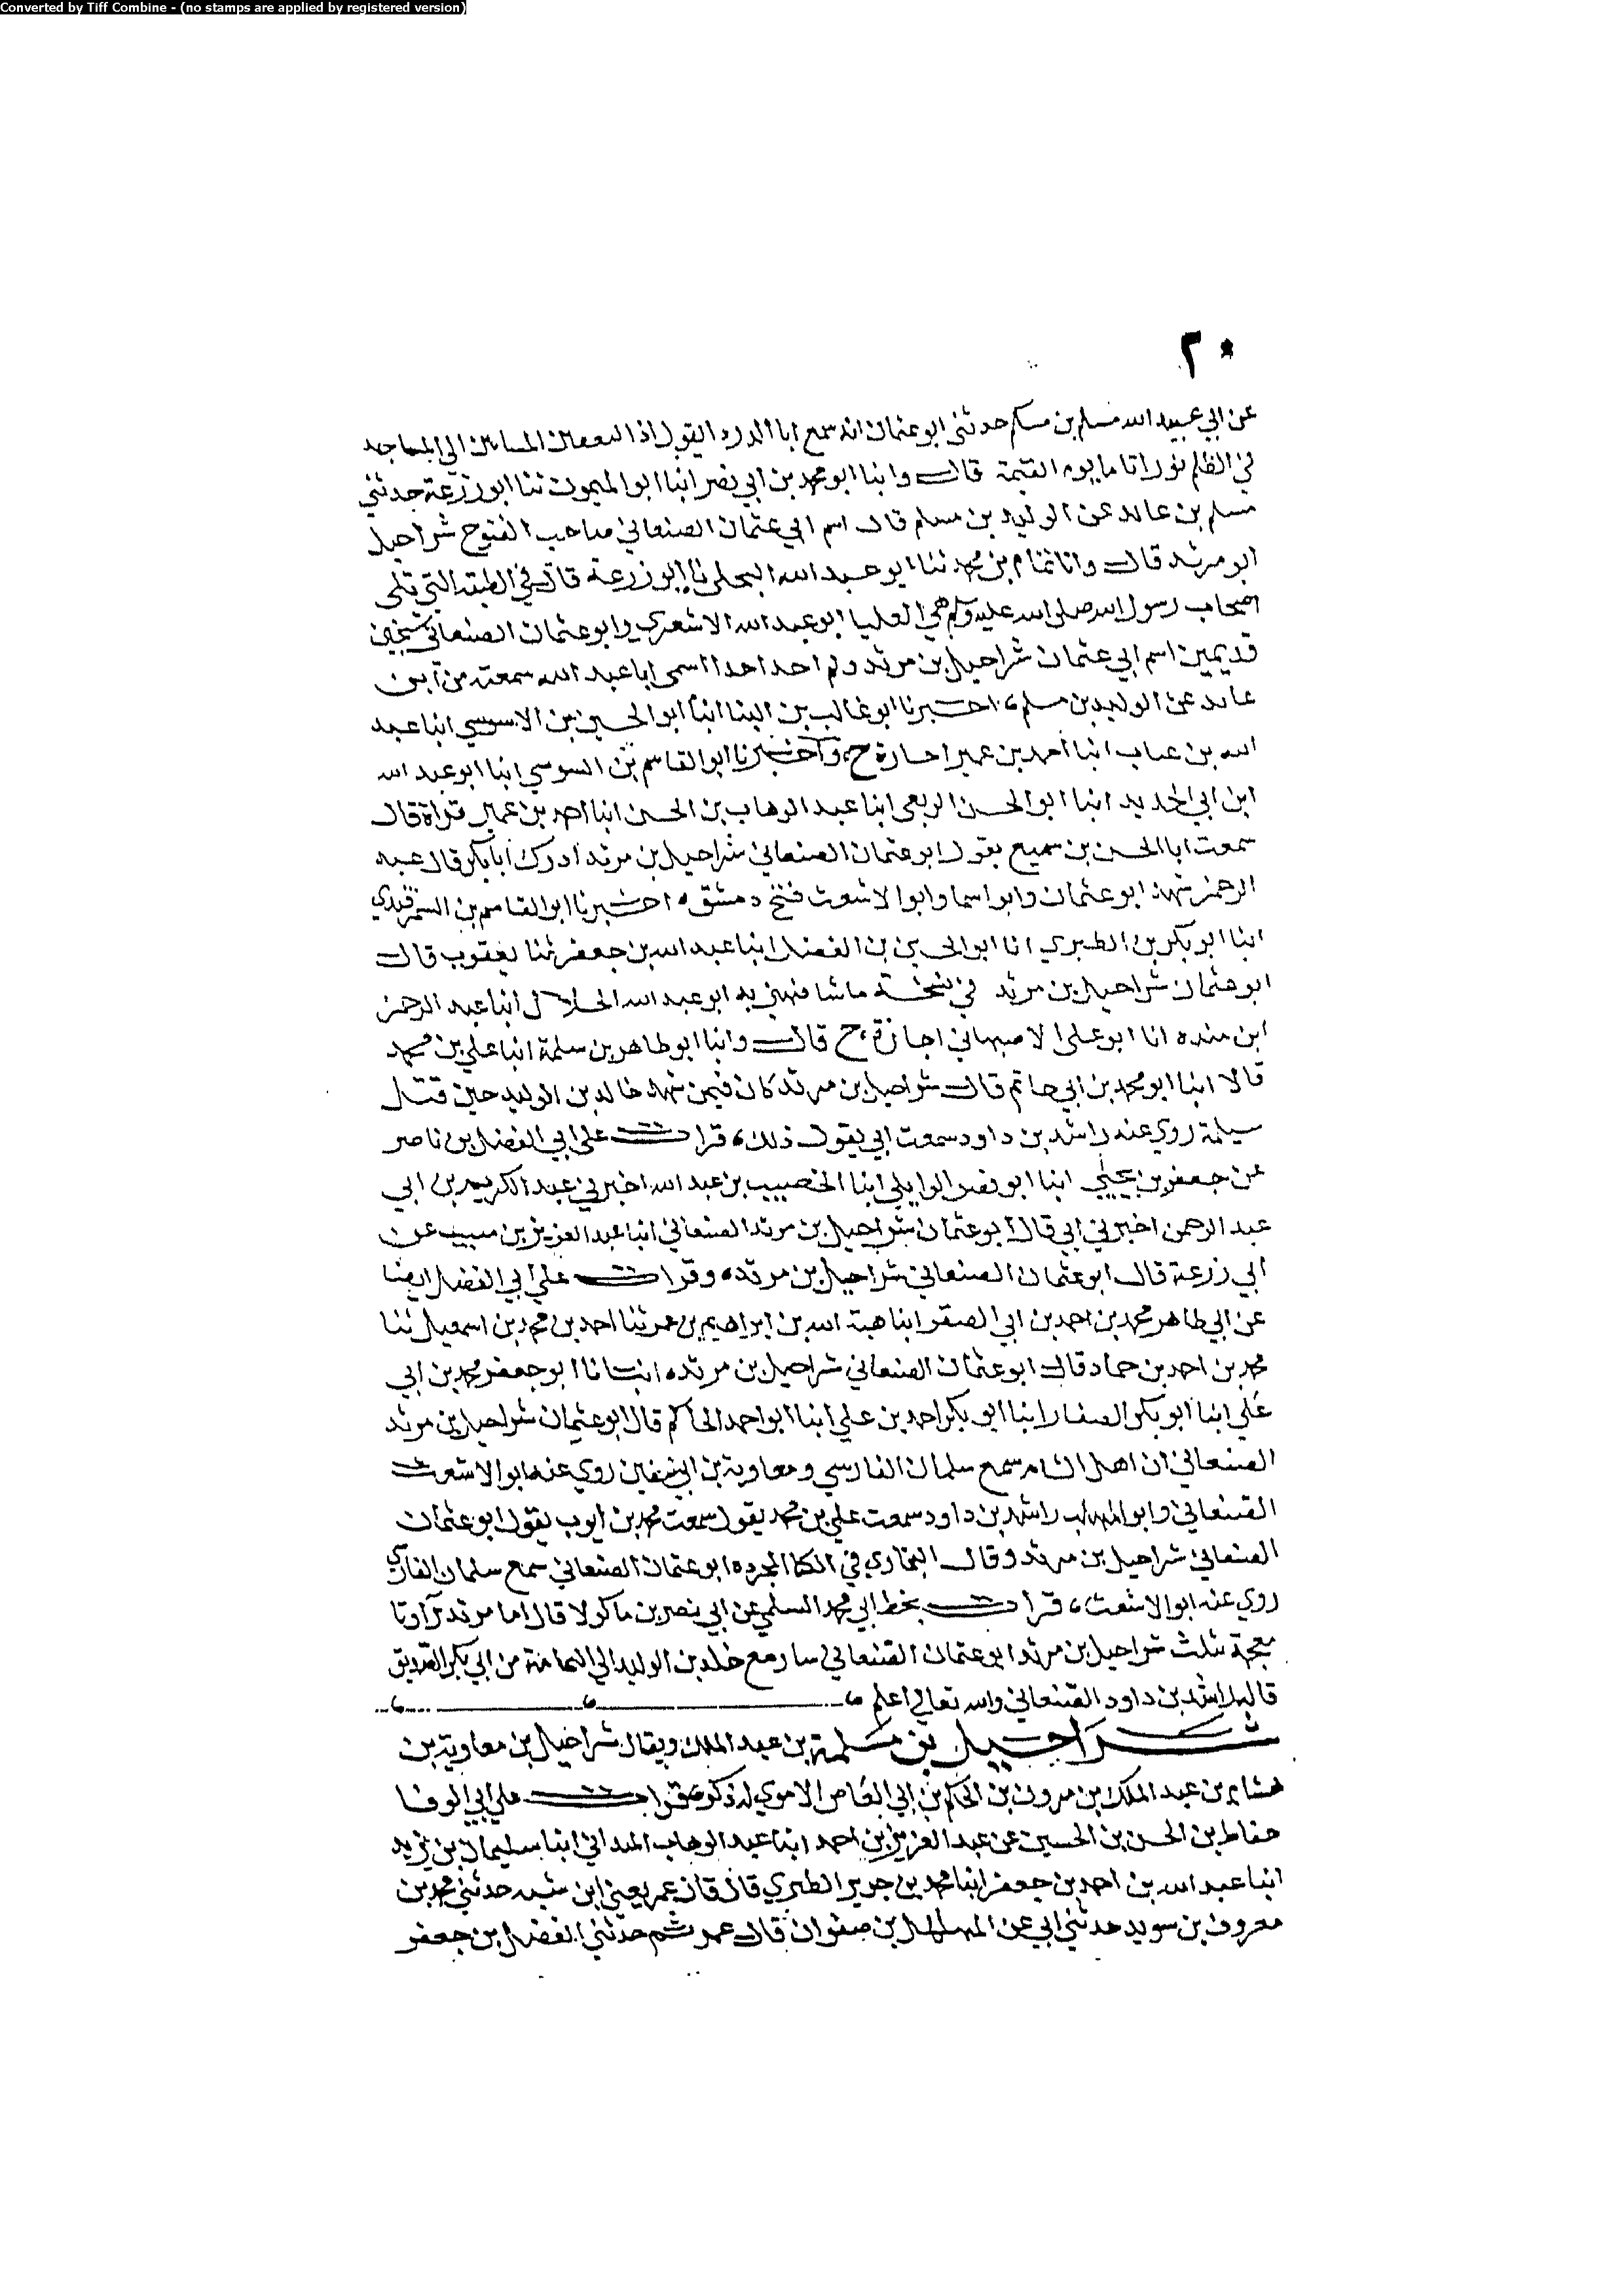 Converted by Tiff Combine - (no stamps are applied by registered version)
٢٠
عن ابي عبيد الله مسلم بن مسكم حدثني ابو عثمان انه سمع ابا الدردا يقول اذا المساجد
في الظلم نورا تاما يوم القيمة قال وانبا ابو محمد بن ابي نصر انبا ابو الميمون ثنا ابو زرعة حدثني
مسلم بن عائد عن الوليد بن مسلم قال اسم ابي عثمان الصنعاني صاحب الفتوح شراحيل
ابو مرثد قال وانا تمام بن محمد ثنا ابو عبد الله البجلي نا ابو زرعة قال في الطبقة التي تلي
اصحاب رسول الله صلى الله عليه وسلم وهي العليا ابو عبد الله الاشعري وابو عثمان الصنعاني شيخين
قديمين اسم ابي عثمان شراحيل بن مرثد ولم احد احدا اسمى ابا عبد الله سمعته من ابن
عايد عن الوليد بن مسلم، اخبرنا ابو غالب بن البنا انبا ابو الحسين بن الابنوسي انبا عبد
الله بن عتاب انبا احمد بن عمير اجازة ح، واخبرنا ابو القاسم بن السوسي انبا ابو عبد الله
ابن ابي الحديد انبا ابو الحسن الربعي انبا عبد الوهاب بن الحسن انبا احمد بن عمير قراة قال
سمعت ابا الحسن بن سميع يقول ابو عثمان الصنعاني شراحيل بن مرثد ادرك ابا بكر قال عبد
الرحمن شهد ابو عثمان وابو اسما وابو الاشعث فتح دمشق ٥ اخبرنا ابو القاسم بن السمرقندي
انبا ابو بكر بن الطبري انا ابو الحسين بن الفضل انبا عبد الله بن جعفر ثنا يعقوب قال
ابو عثمان شراحيل بن مرثد في نسخة ما شافهني به ابو عبد الله الخلال انبا عبد الرحمن
ابن منده انا ابو علي الاصبهاني اجازة، ح قال وانبا ابو طاهر بن سلمة انبا علي بن محمد
قالا انبا ابو محمد بن ابي حاتم قال شراحيل بن مرثد كان فيمن شهد خالد بن الوليد حين قتل
سيلمة روي عنه راشد بن داود سمعت ابي يقول ذلك، قرات على ابي الفضل بن ناصر
عن جعفر بن يحيى انبا ابو نصر الوايلي انبا الخصيب بن عبد الله اخبرني عبد الكريم بن ابي
عبد الرحمن اخبرني ابي قال ابو عثمان شراحيل بن مرثد الصنعاني انبا عبد العزيز بن سبيب عن
ابي زرعة قال ابو عثمان الصنعاني شراحيل بن مرثد ٥ وقرات علي ابي الفضل ايضا
عن ابي طاهر محمد بن احمد بن ابي الصقر انبا هبة الله بن ابراهيم بن عمر ثنا احمد بن محمد بن اسمعيل ثنا
محمد بن احمد بن حماد قال ابو عثمان الصنعاني شراحيل بن مرثد ٥ انبانا ابو جعفر محمد بن ابي
علي انبا ابو بكر الصفار انبا ابو بكر احمد بن علي انبا ابو احمد الحاكم قال ابو عثمان شراحيل بن مرثد
الصنعاني ان اهل الشام سمع سلمان الفارسي ومعاوية بن ابي سفين روي عنه ابو الاشعث
الصنعاني وابو المهلب راشد بن داود سمعت علي بن محمد يقول سمعت محمد بن ايوب يقول ابو عثمان
الصنعاني شراحيل بن مرثد وقال البخاري في الكنا المجرده ابو عثمان الصنعاني سمع سلمان الفارسي
روي عنه ابو الاشعث، قرات بخط ابي محمد السلمي عن ابي نصر بن ماكولا قال اما مرثد براوثا
معجمة بثلث شراحيل بن مرثد ابو عثمان الصنعاني سار مع خلد بن الوليد الي اليمامة من ابي بكر الصديق
قاله راشد بن داود الصنعاني والله تعالي اعلم
شراحيل بن مسلمة بن عبد الملك ويقال شراحيل بن معاوية بن
هشام بن عبد الملك بن مرون بن الحكم بن ابي العاص الاموي له ذكر، قرات علي ابي الوفا
حفاظ بن الحسن بن الحسين عن عبد العزيز بن احمد انبا عبد الوهاب الميداني انبا سليمان بن يزيد
انبا عبد الله بن احمد بن جعفر انبا محمد بن جرير الطبري قال قال عمر يعني ابن شبه حدثني محمد بن
معروف بن سويد حدثني ابي عن المهلهل بن صفوان قال عمر ثم حدثني الفضل بن جعفر